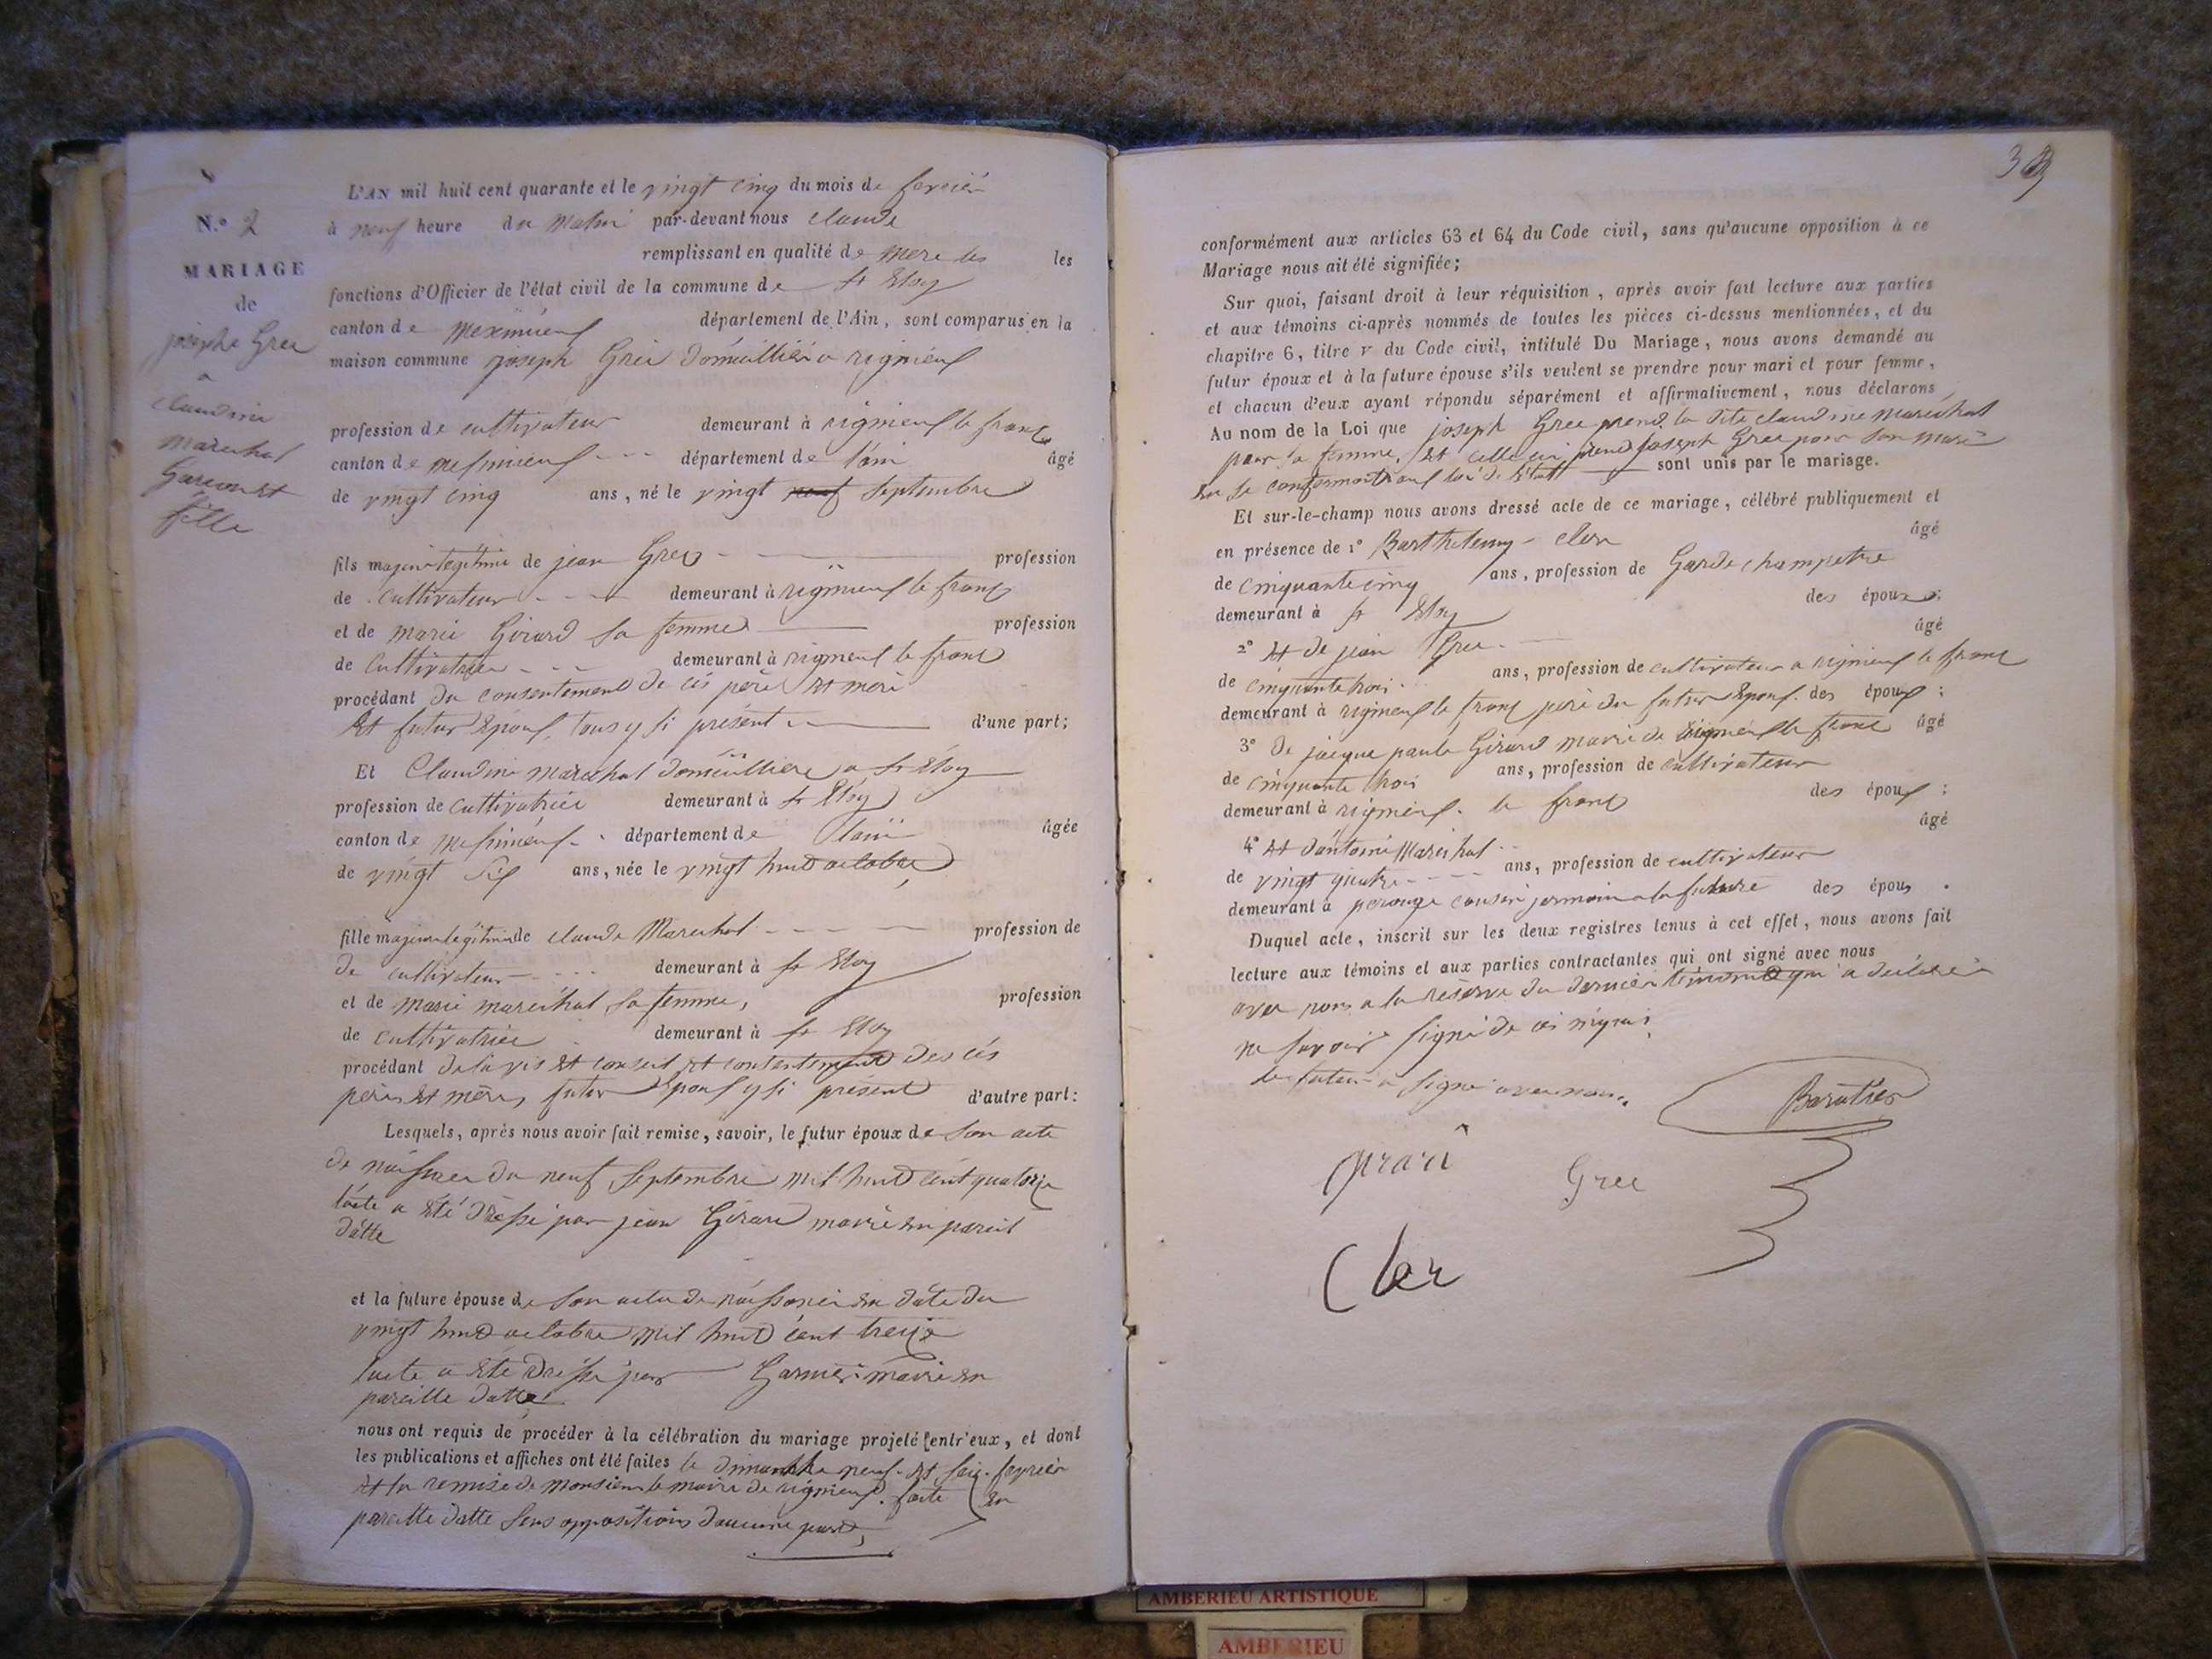 N.º 2
MARIAGE
de
josephe Gree
a
claudine
marechal
Garcon et
fille
L'AN mil huit cent quarante et le vingt cinq du mois de fevrier
à neuf heure du matin par-devant nous claude
remplissant en qualité de mere les les
fonctions d'Officier de l'état civil de la commune de St Eloy
canton de Meximieuf département de l'Ain, sont comparus en la
maison commune joseph Grée domicillier a rignieuf
profession de cultivateur demeurant à rignieuf le franc
canton de mesimieuf département de l'ain âgé
de vingt cinq ans, né le vingt neuf septembre
fils majeur legitime de jean Gree profession
de cultivateur demeurant à rignieuf le franc
et de marie Girard sa femme profession
de cultivatrice demeurant à rignieuf le franc
procédant du consentement de cés père et mere
Et futur Epouf tous y si présent d'une part;
Et Claudine marechal domicilliere a St Eloy
profession de cultivatrice demeurant à St Eloy
canton de mesimieuf département de l'ain âgée
de vingt sif ans, née le vingt huit octobre
fille majeur legitime de claude Marechal profession de
de cultivateur demeurant à St Eloy
et de marie maréchal sa femme, profession
de cultivatrice demeurant à St Eloy
procédant de lavis et conseil et consentement des cés
pères et mères futur Epouf y si présent d'autre part:
Lesquels, après nous avoir fait remise, savoir, le futur époux de son acte
de naissance du neuf septembre mil huit cent quatorze
lacte a été dressé par jean Girard maire en pareil
datte
et la future épouse de son acte de naissance en date du
vingt huit octobre mil huit cent treize
lacte a été dressé par Garnier maire en
pareille datte
nous ont requis de procéder à la célébration du mariage projeté entr'eux, et dont
les publications et affiches ont été faites le dimanche neuf et seize fevrier
et la remise de monsieur le maire de rignieuf faite en
pareille datte sens oppositions daucune part
conformément aux articles 63 et 64 du Code civil, sans qu'aucune opposition à ce
Mariage nous ait été signifiée;
Sur quoi, faisant droit à leur réquisition, après avoir fait lecture aux parties
et aux témoins ci-après nommés de toutes les pièces ci-dessus mentionnées, et du
chapitre 6, titre V du Code civil, intitulé Du Mariage, nous avons demandé au
futur époux et à la future épouse s'ils veulent se prendre pour mari et pour femme,
et chacun d'eux ayant répondu séparément et affirmativement, nous déclarons
Au nom de la Loi que joseph Gree prend la dite claudine marechal
pour sa femme, et celle ci prend joseph Gree pour son mari
en se conformant auf loi de l'Etat sont unis par le mariage.
Et sur-le-champ nous avons dressé acte de ce mariage, célébré publiquement et
en présence de 1º Barthelemy Cler âgé
de cinquante cinq ans, profession de Garde champetre
demeurant à St Eloy des époux;
2º Et de jean Gree âgé
de cinquante trois ans, profession de cultivateur a rignieuf le franc
demeurant à rignieuf le franc père du futur Epouf des épouf;
3º De jacque paule Girard maire de rignieuf le franc âgé
de cinquante trois ans, profession de cultivateur
demeurant à rignieuf le franc des épouf;
4º Et dantoine Maréchal âgé
de vingt quatre ans, profession de cultivateur
demeurant à perouge cousin jermain a la future des épous.
Duquel acte, inscrit sur les deux registres tenus à cet effet, nous avons fait
lecture aux témoins et aux parties contractantes qui ont signé avec nous
avec nous a la réserve du dernier témoins qui a déclaré
ne savoir signé de ces
le futur a signé avec nous
Barutier
Girard
Gree
Cler
AMBERIEU ARTISTIQUE
AMBERIEU